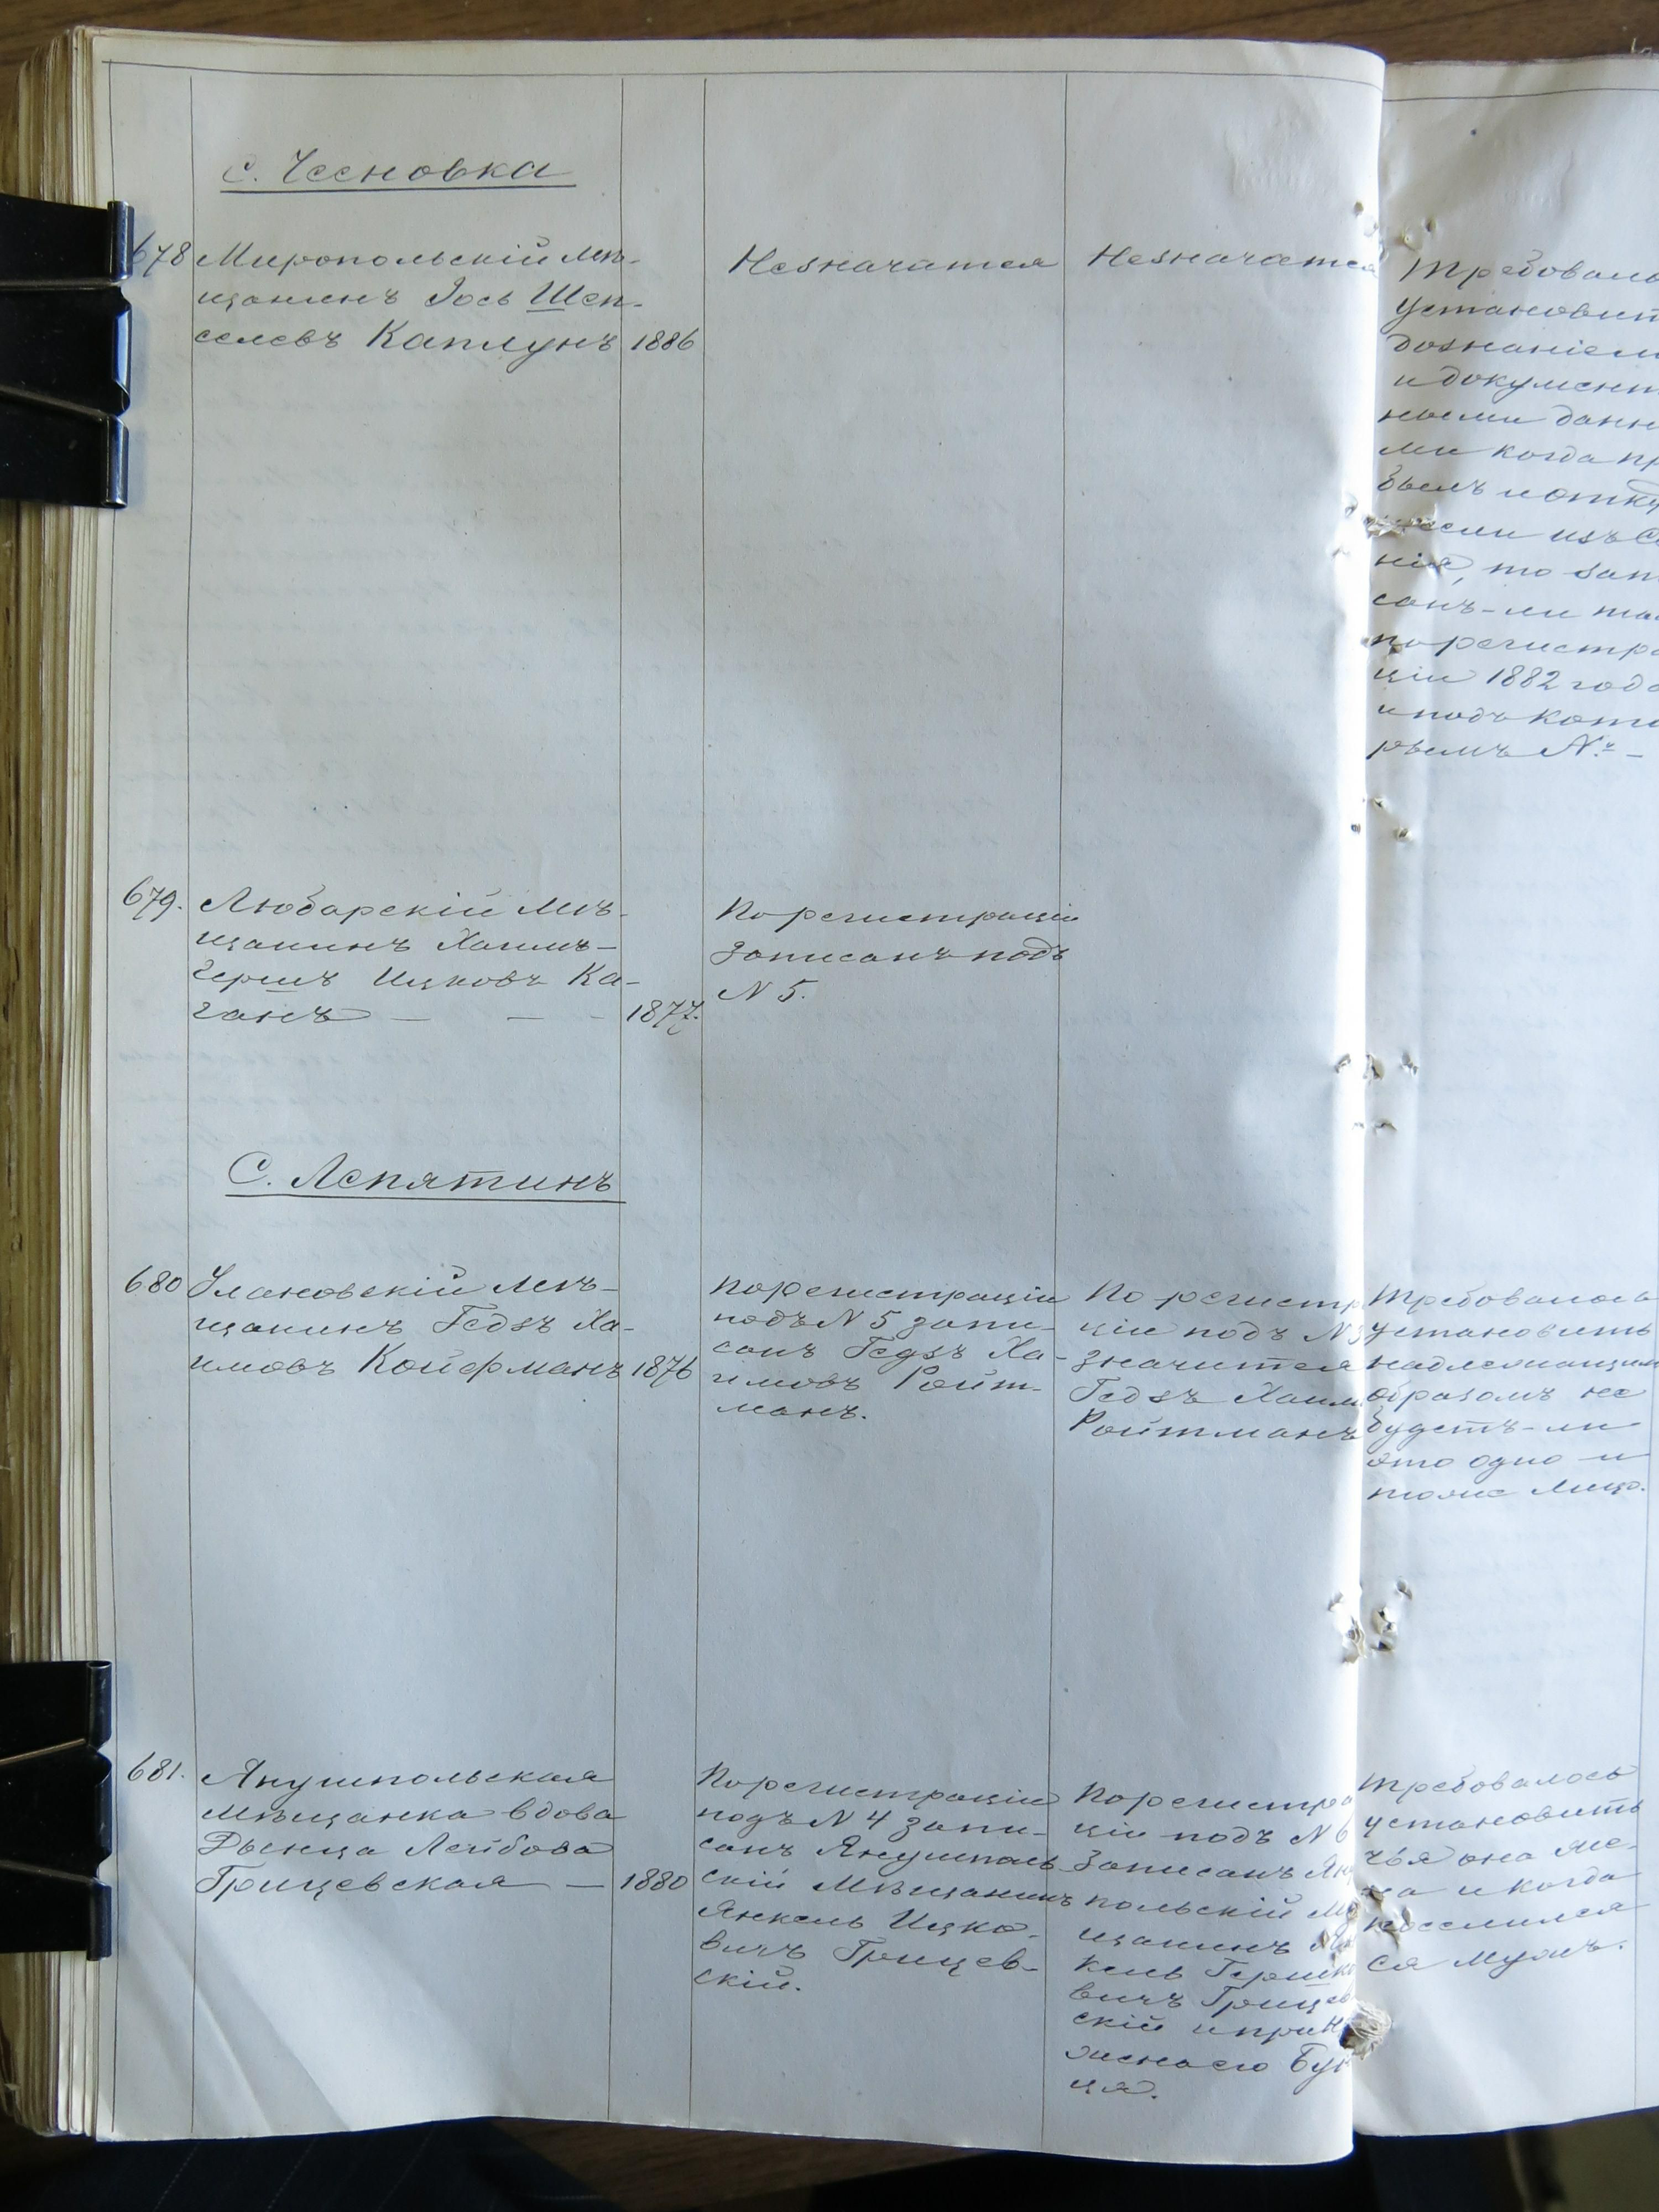 С. Чесновка
678 Миропольскій мѣ-
щанинъ Іось Шеп-
селевъ Каплунъ 1886
Незначится
Незначится
Требовалось
установит
дознаніем
и документ
ными данн
ми когда пр
былъ и отку
если изъ С
нія, то зап
санъ-ли та
по регистра
ціи 1882 года
и подъ кото
рымъ №-
679. Любарскій мѣ-
щанинъ Хаимъ-
Гершъ Ицковъ Ка-
ганъ — — - 1877.
По регистраціи
записанъ подъ
N 5.
С. Лепятинъ
680 Улановскій мѣ-
щанинъ Гедзъ Ха-
имовъ Койфманъ 1876
По регистраціи
подъ N 5 запи-
санъ Гедзъ Ха-
имовъ Ройт-
манъ.
По регистр
ціи подъ N 3
значится
Гедзъ Хаим
Ройтманъ
Требовалось
установить
надлежащим
образомъ не
будетъ-ли
это одно и
тоже лицо.
681. Янушпольская
мѣщанка вдова
Рыница Лейбова
Грицевская — 1880
По регистраціи
подъ N 4 запи-
санъ Янушполь
скій мѣщанинъ
Янкель Ицко-
вичъ Грицев-
скій.
По регистра
ціи подъ N 6
записанъ Ян
польскій мѣ
щанинъ Ян
кель Гершко
вичъ Грицев
скій и при н
жена его Бун
ця.
Требовалось
установить
чья она же-
на и когда
поселился
ся мужъ.